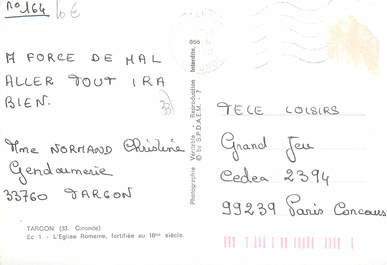 n° 164 10 €
A FORCE DE MAL
ALLER TOUT IRA
BIEN.
33
Mme NORMAND Christine
Gendarmerie
33760 TARGON
TARGON (33. Gironde)
Ec 1 - L'Eglise Romaine, fortifiée au 16me siècle.
Photographie Véritable - Reproduction Interdite.
© by S.P.D.A.E.M. - 7
TELE LOISIRS
Grand Jeu
Cedex 2394
99239 Paris Concours